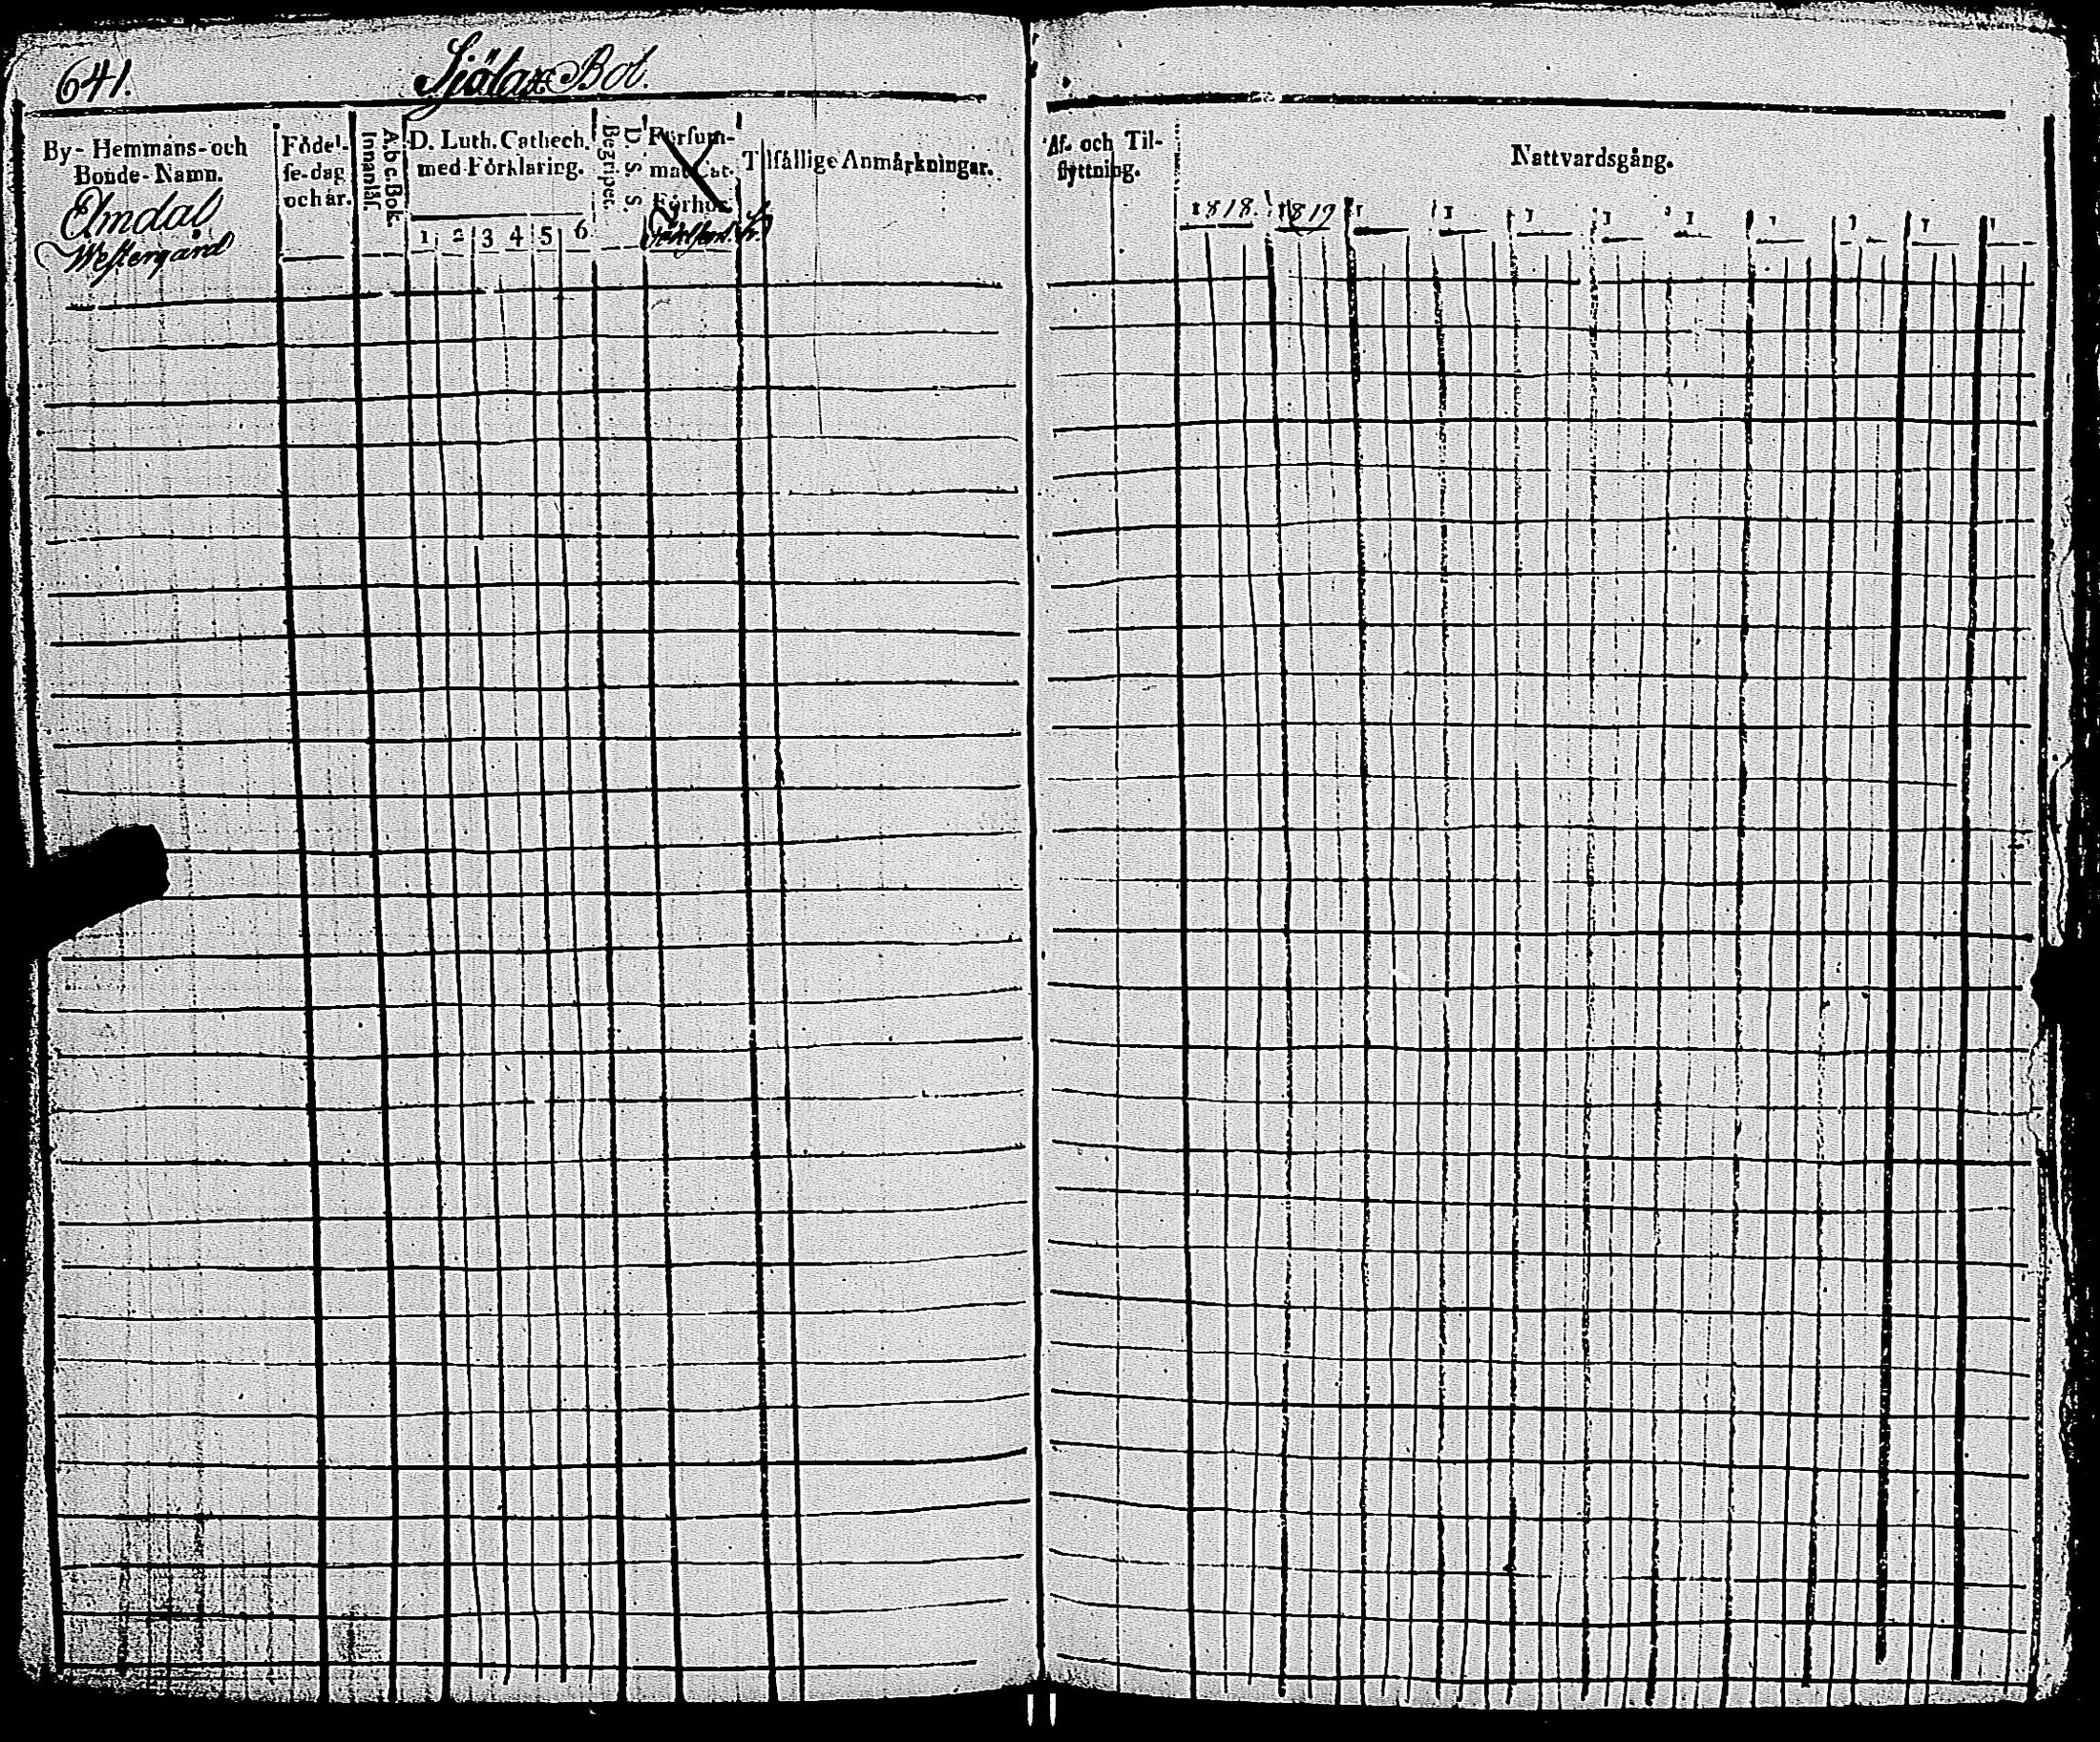 641. Sjölax Bol.
By- Hemmans- och
Bonde-Namn.
Elmdal
Westergård
Födel-
se-dag
och år.
A.b.c. Bok.
Innanläs.
D. Luth. Cathech.
med Förklaring.
1 2 3 4 5 6
Begripet.
D. S. S.
Försum-
mat Cat.
Förhör.
Tilfällige Anmärkningar.
Af- och Til-
flyttning.
Nattvardsgång.
1818. 1819 1 1 1 1 1 1 1 1 1